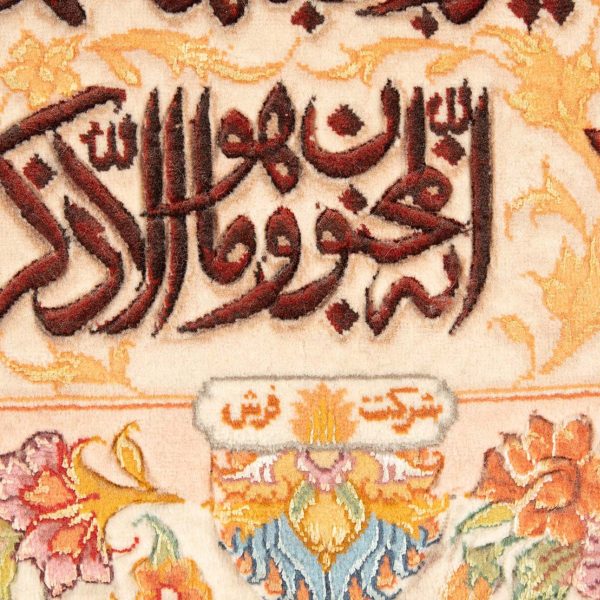 انه لمجنون وما هو الا ذكر
شرکت فرش